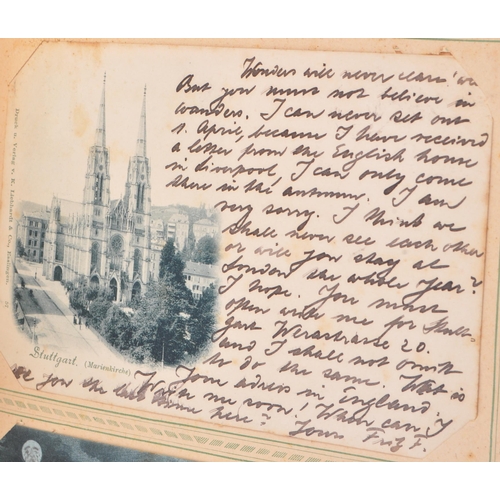 Wonders will never cease! we
But you must not believe in
wonders. I can never set out
1. April, because I have received
a letter from the English home
in Liverpool, I can only come
there in the autumn. I am
very sorry. I think we
shall never see each other
or will you stay at
London the whole year?
I hope. You must
open write me for Stutt-
gart Werastrasse 20.
and I shall not omitt
to do the same. What is
Your adress in England.
Write me soon! When can I
see you the last time here? Yours Fritz F.
Stuttgart. (Marienkirche)
Druck u. Verlag v. R. Lützhardt & Co., Esslingen.